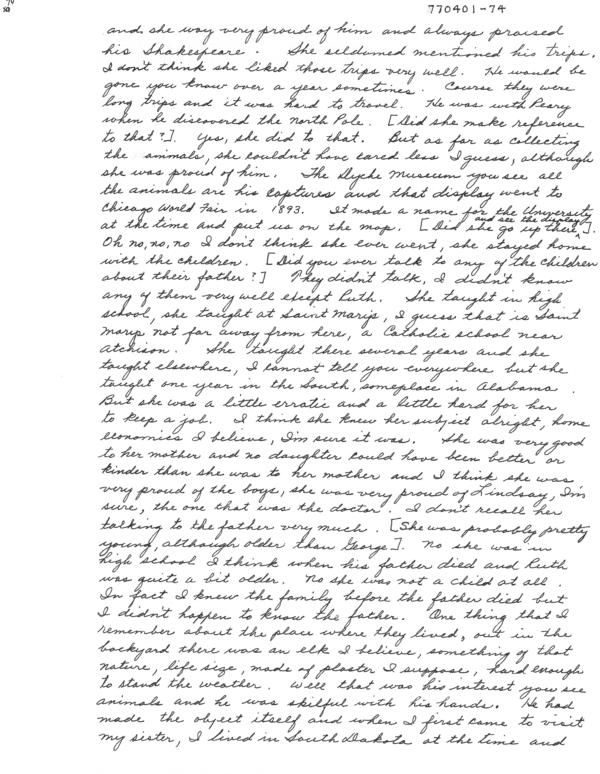 770401-74
and she way very proud of him and always praised
his Shakespeare. She seldumed mentioned his trips.
I don't think she liked those trips very well. He would be
gone you know over a year sometimes. Course they were
long trips and it was hard to travel. He was with Peary
when he discovered the North Pole. [Did she make reference
to that?]. Yes, she did to that. But as far as collecting
the animals, she couldn't have cared less I guess, although
she was proud of him. The Dyche Museum you see all
the animals are his captures and that display went to
Chicago World Fair in 1893. It made a name for the University
at the time and put us on the map. [Did she go up there and see the display].
Oh no, no, no I don't think she ever went, she stayed home
with the children. [Did you ever talk to any of the children
about their father?] They didn't talk, I didn't know
any of them very well except Ruth. She taught in high
school, she taught at Saint Marys, I guess that is Saint
Marys not far away from here, a Catholic school near
Atchison. She taught there several years and she
taught elsewhere, I cannot tell you everywhere but she
taught one year in the South, someplace in Alabama.
But she was a little erratic and a little hard for her
to keep a job. I think she knew her subject alright, home
economics I believe, I'm sure it was. She was very good
to her mother and no daughter could have been better or
kinder than she was to her mother and I think she was
very proud of the boys, she was very proud of Lindsay, I'm
sure, the one that was the doctor. I don't recall her
talking to the father very much. [She was probably pretty
young, although older than George]. No she was in
high school I think when his father died and Ruth
was quite a bit older. No she was not a child at all.
In fact I knew the family before the father died but
I didn't happen to know the father. One thing that I
remember about the place where they lived, out in the
backyard there was an elk I believe, something of that
nature, life size, made of plaster I suppose, hard enough
to stand the weather. Well that was his interest you see
animals and he was skilful with his hands. He had
made the object itself and when I first came to visit
my sister, I lived in South Dakota at the time and